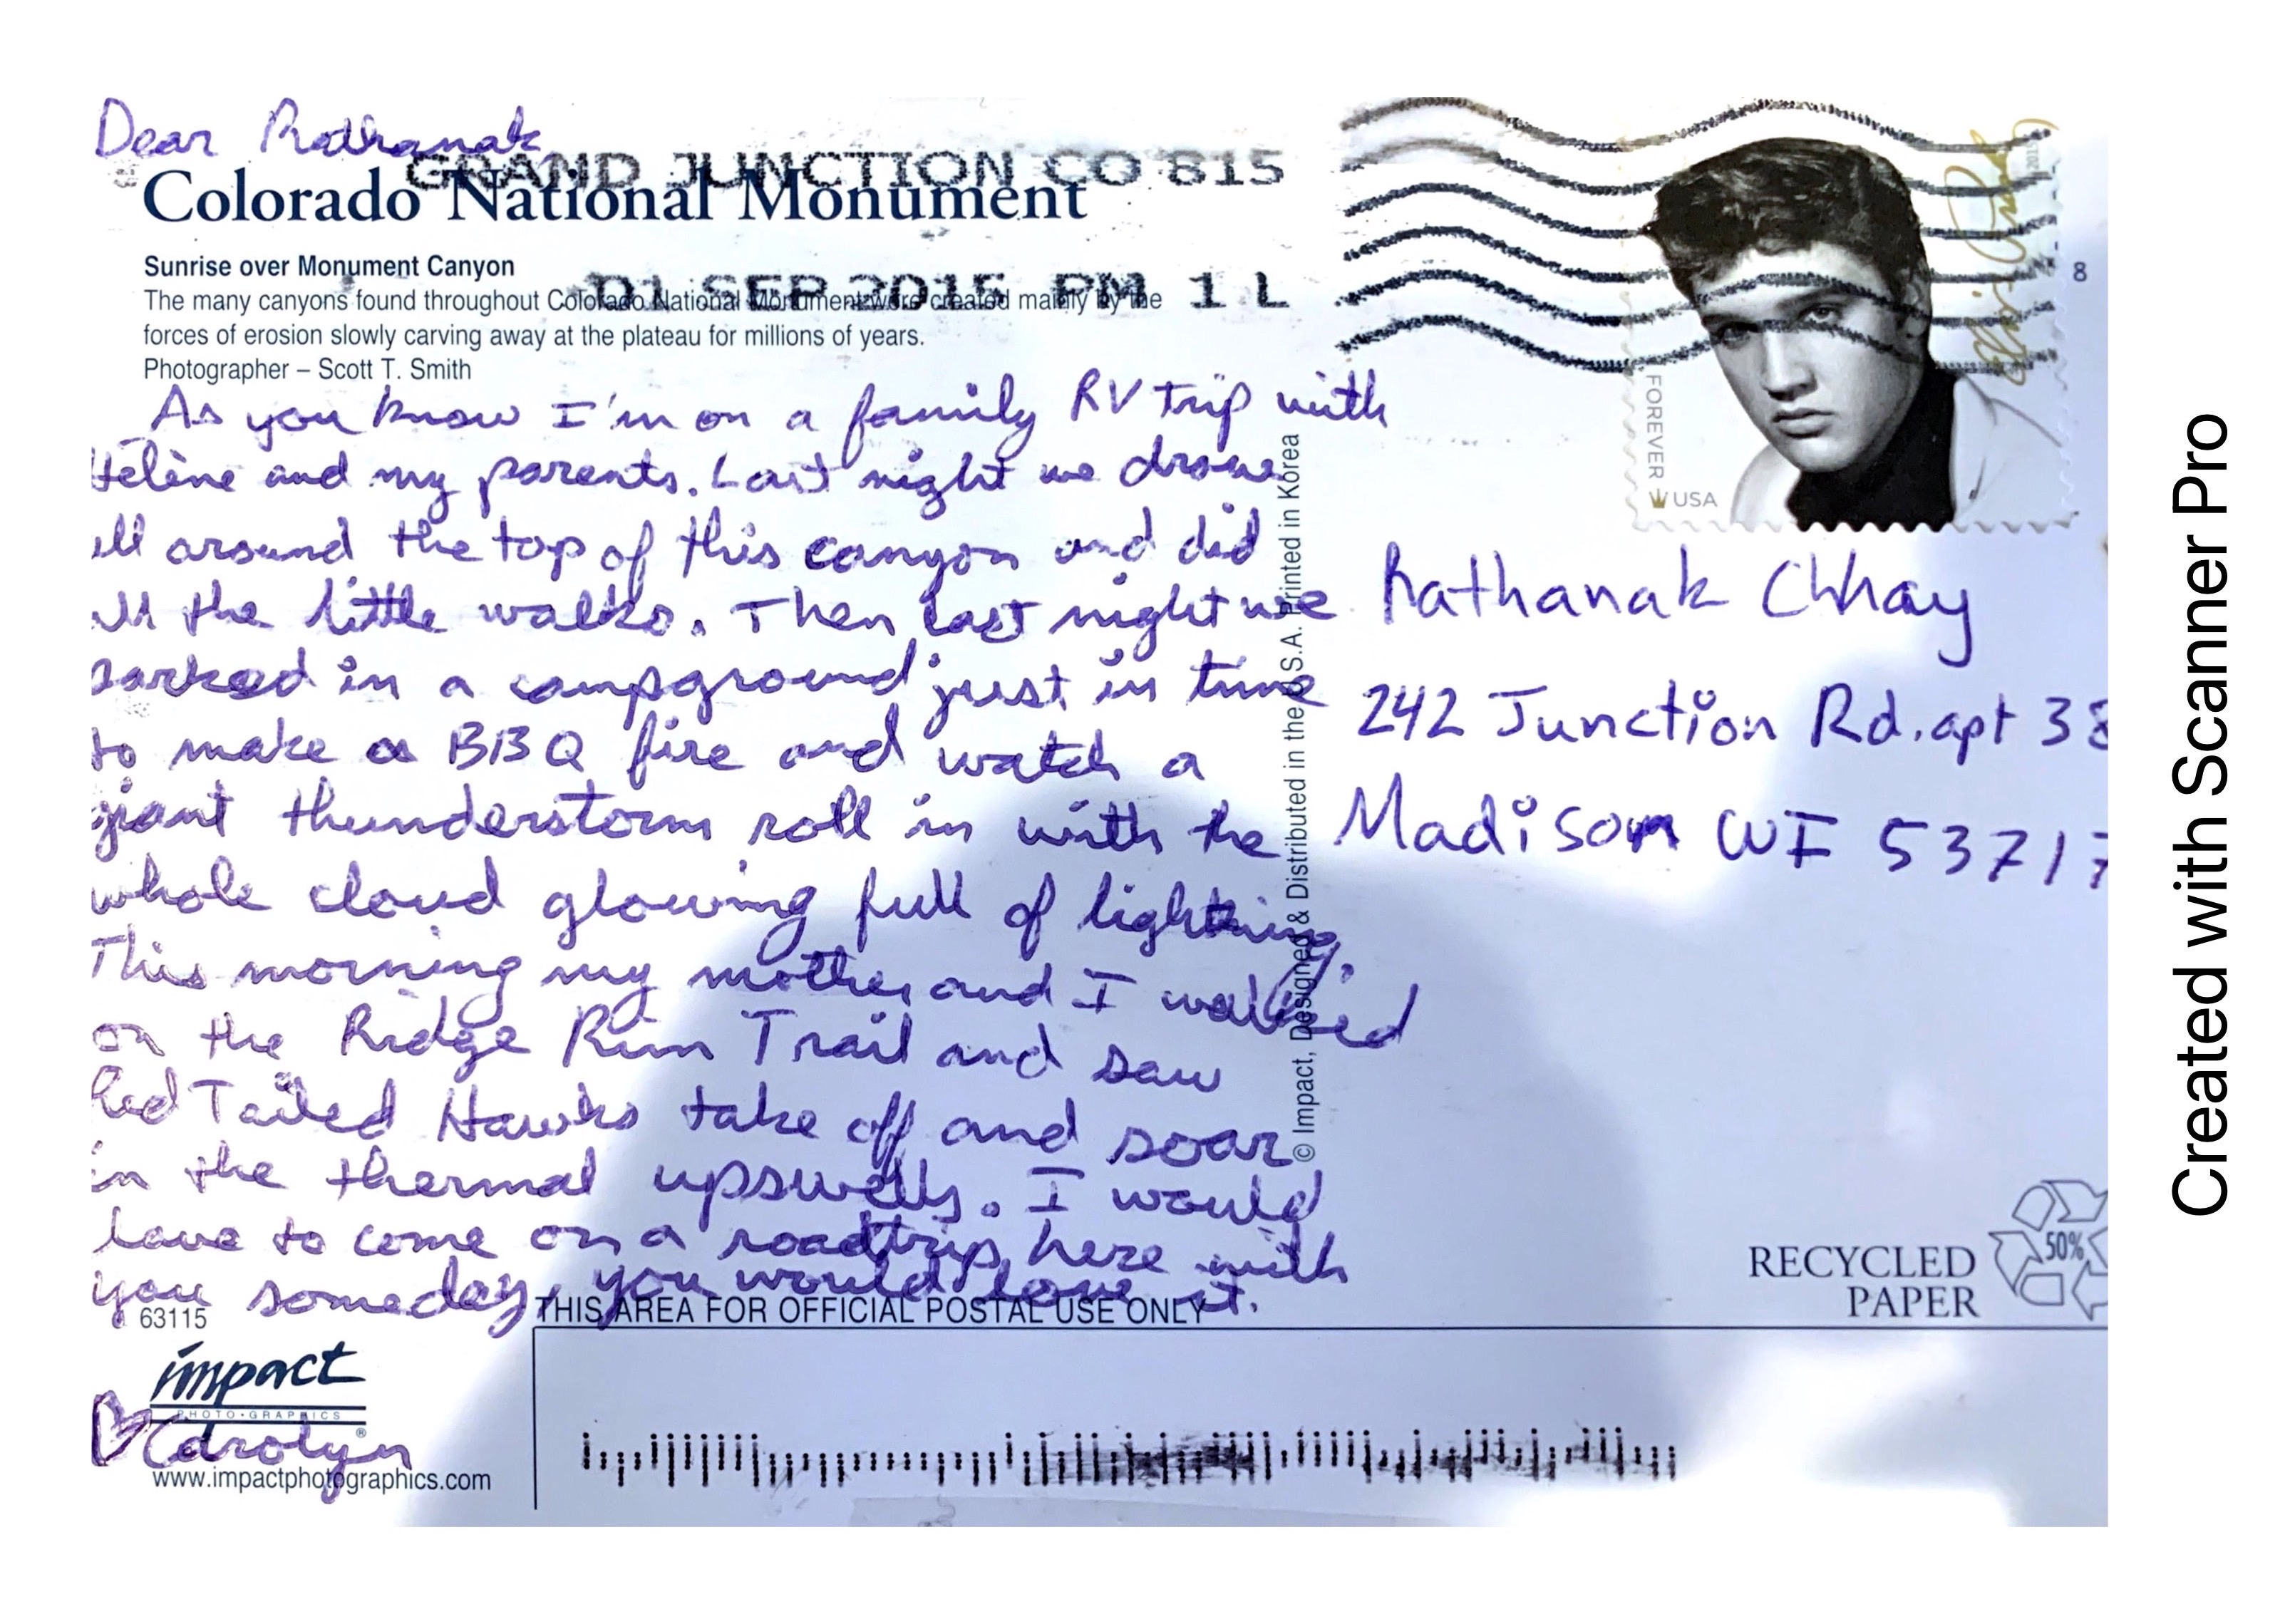 Dear Rathanak
GRAND JUNCTION CO 815
Colorado National Monument
Sunrise over Monument Canyon
01 SEP 2015 PM 1 L
The many canyons found throughout Colorado National Monument were created mainly by the
forces of erosion slowly carving away at the plateau for millions of years.
Photographer – Scott T. Smith
As you know I'm on a family RV trip with
Helène and my parents. Last night we drove
all around the top of this canyon and did
all the little walks. Then last night we
parked in a campground just in time
to make a BBQ fire and watch a
giant thunderstorm roll in with the
whole cloud glowing full of lightning.
This morning my mother and I walked
on the Ridge Rim Trail and saw
Red Tailed Hawks take off and soar
in the thermal upswells. I would
love to come on a roadtrip here with
you someday, you would love it.
63115
impact
PHOTO·GRAPHICS
®
♡ Carolyn
www.impactphotographics.com
© Impact, Designed & Distributed in the U.S.A. Printed in Korea
FOREVER
USA
Elvis Presley
2015
8
Rathanak Chhay
242 Junction Rd. apt 38
Madison WI 53717
RECYCLED
PAPER
50%
THIS AREA FOR OFFICIAL POSTAL USE ONLY
Created with Scanner Pro